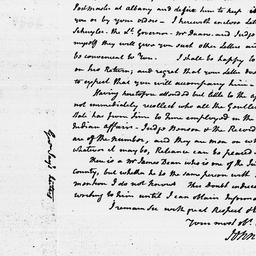 Postmaster at albany and desire him to keep it
you or by your order – I herewith enclose Letters
Schuyler. the Lt. Governor. Mr Duane. and Judge
myself they will give you such other Letters and
be convenient to You. I shall be happy to
on her Return; and regret that your Letter does
to expect that you will accompany him –
Having heretofore attended but little to the
not immediately recollect who all the Gentlemen
State has from Time to Time employed in the
Indian affairs – Judge Benson & the Revd
are of the number, and they are men on wh
whatever it may be, Reliance can be placed
There is a Mr James Dean who is one of the Jud
County, but whether he be the same person with
mention I do not know. This Doubt induces
writing to him until I can obtain Informa
I remain &c with great Respect &
Your most ob.
John